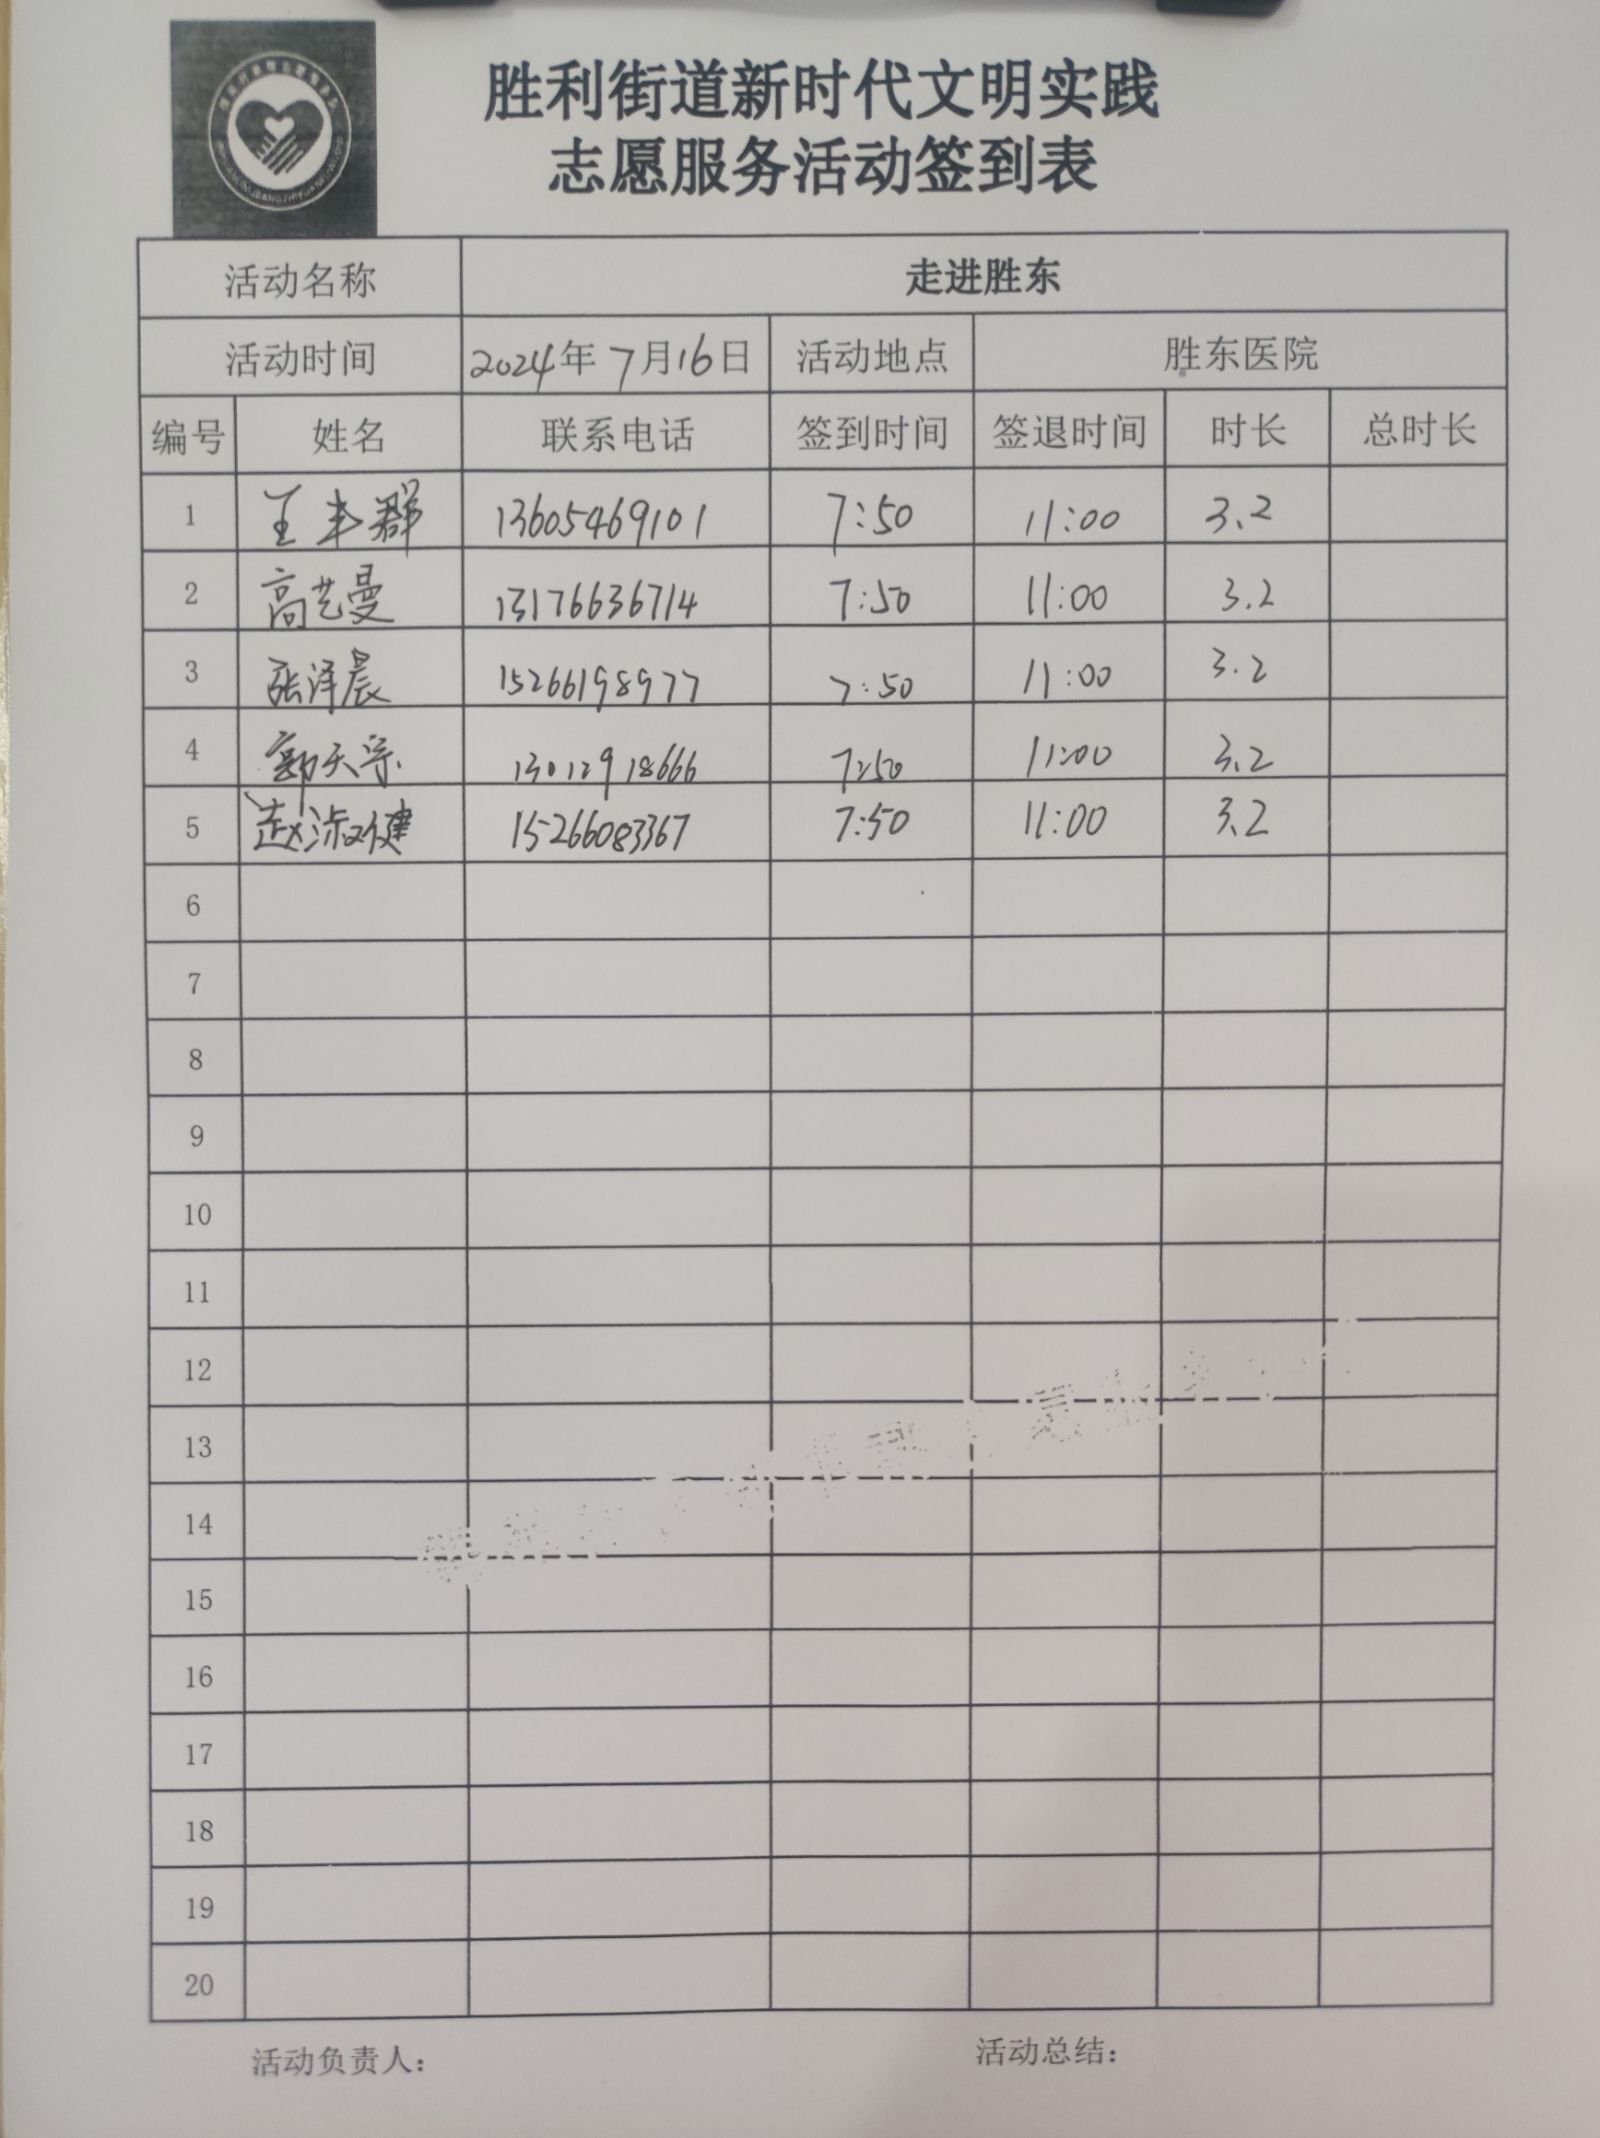 胜利街道新时代文明实践
志愿服务活动签到表
活动名称 走进胜东
活动时间 2024年7月16日 活动地点 胜东医院
编号 姓名 联系电话 签到时间 签退时间 时长 总时长
1 王丰群 13605469101 7:50 11:00 3.2
2 高艺曼 13176636714 7:50 11:00 3.2
3 张泽晨 15266198977 7:50 11:00 3.2
4 郭天宗 13012918666 7:50 11:00 3.2
5 赵淑健 15266083367 7:50 11:00 3.2
6
7
8
9
10
11
12
13
14
15
16
17
18
19
20
活动负责人： 活动总结：